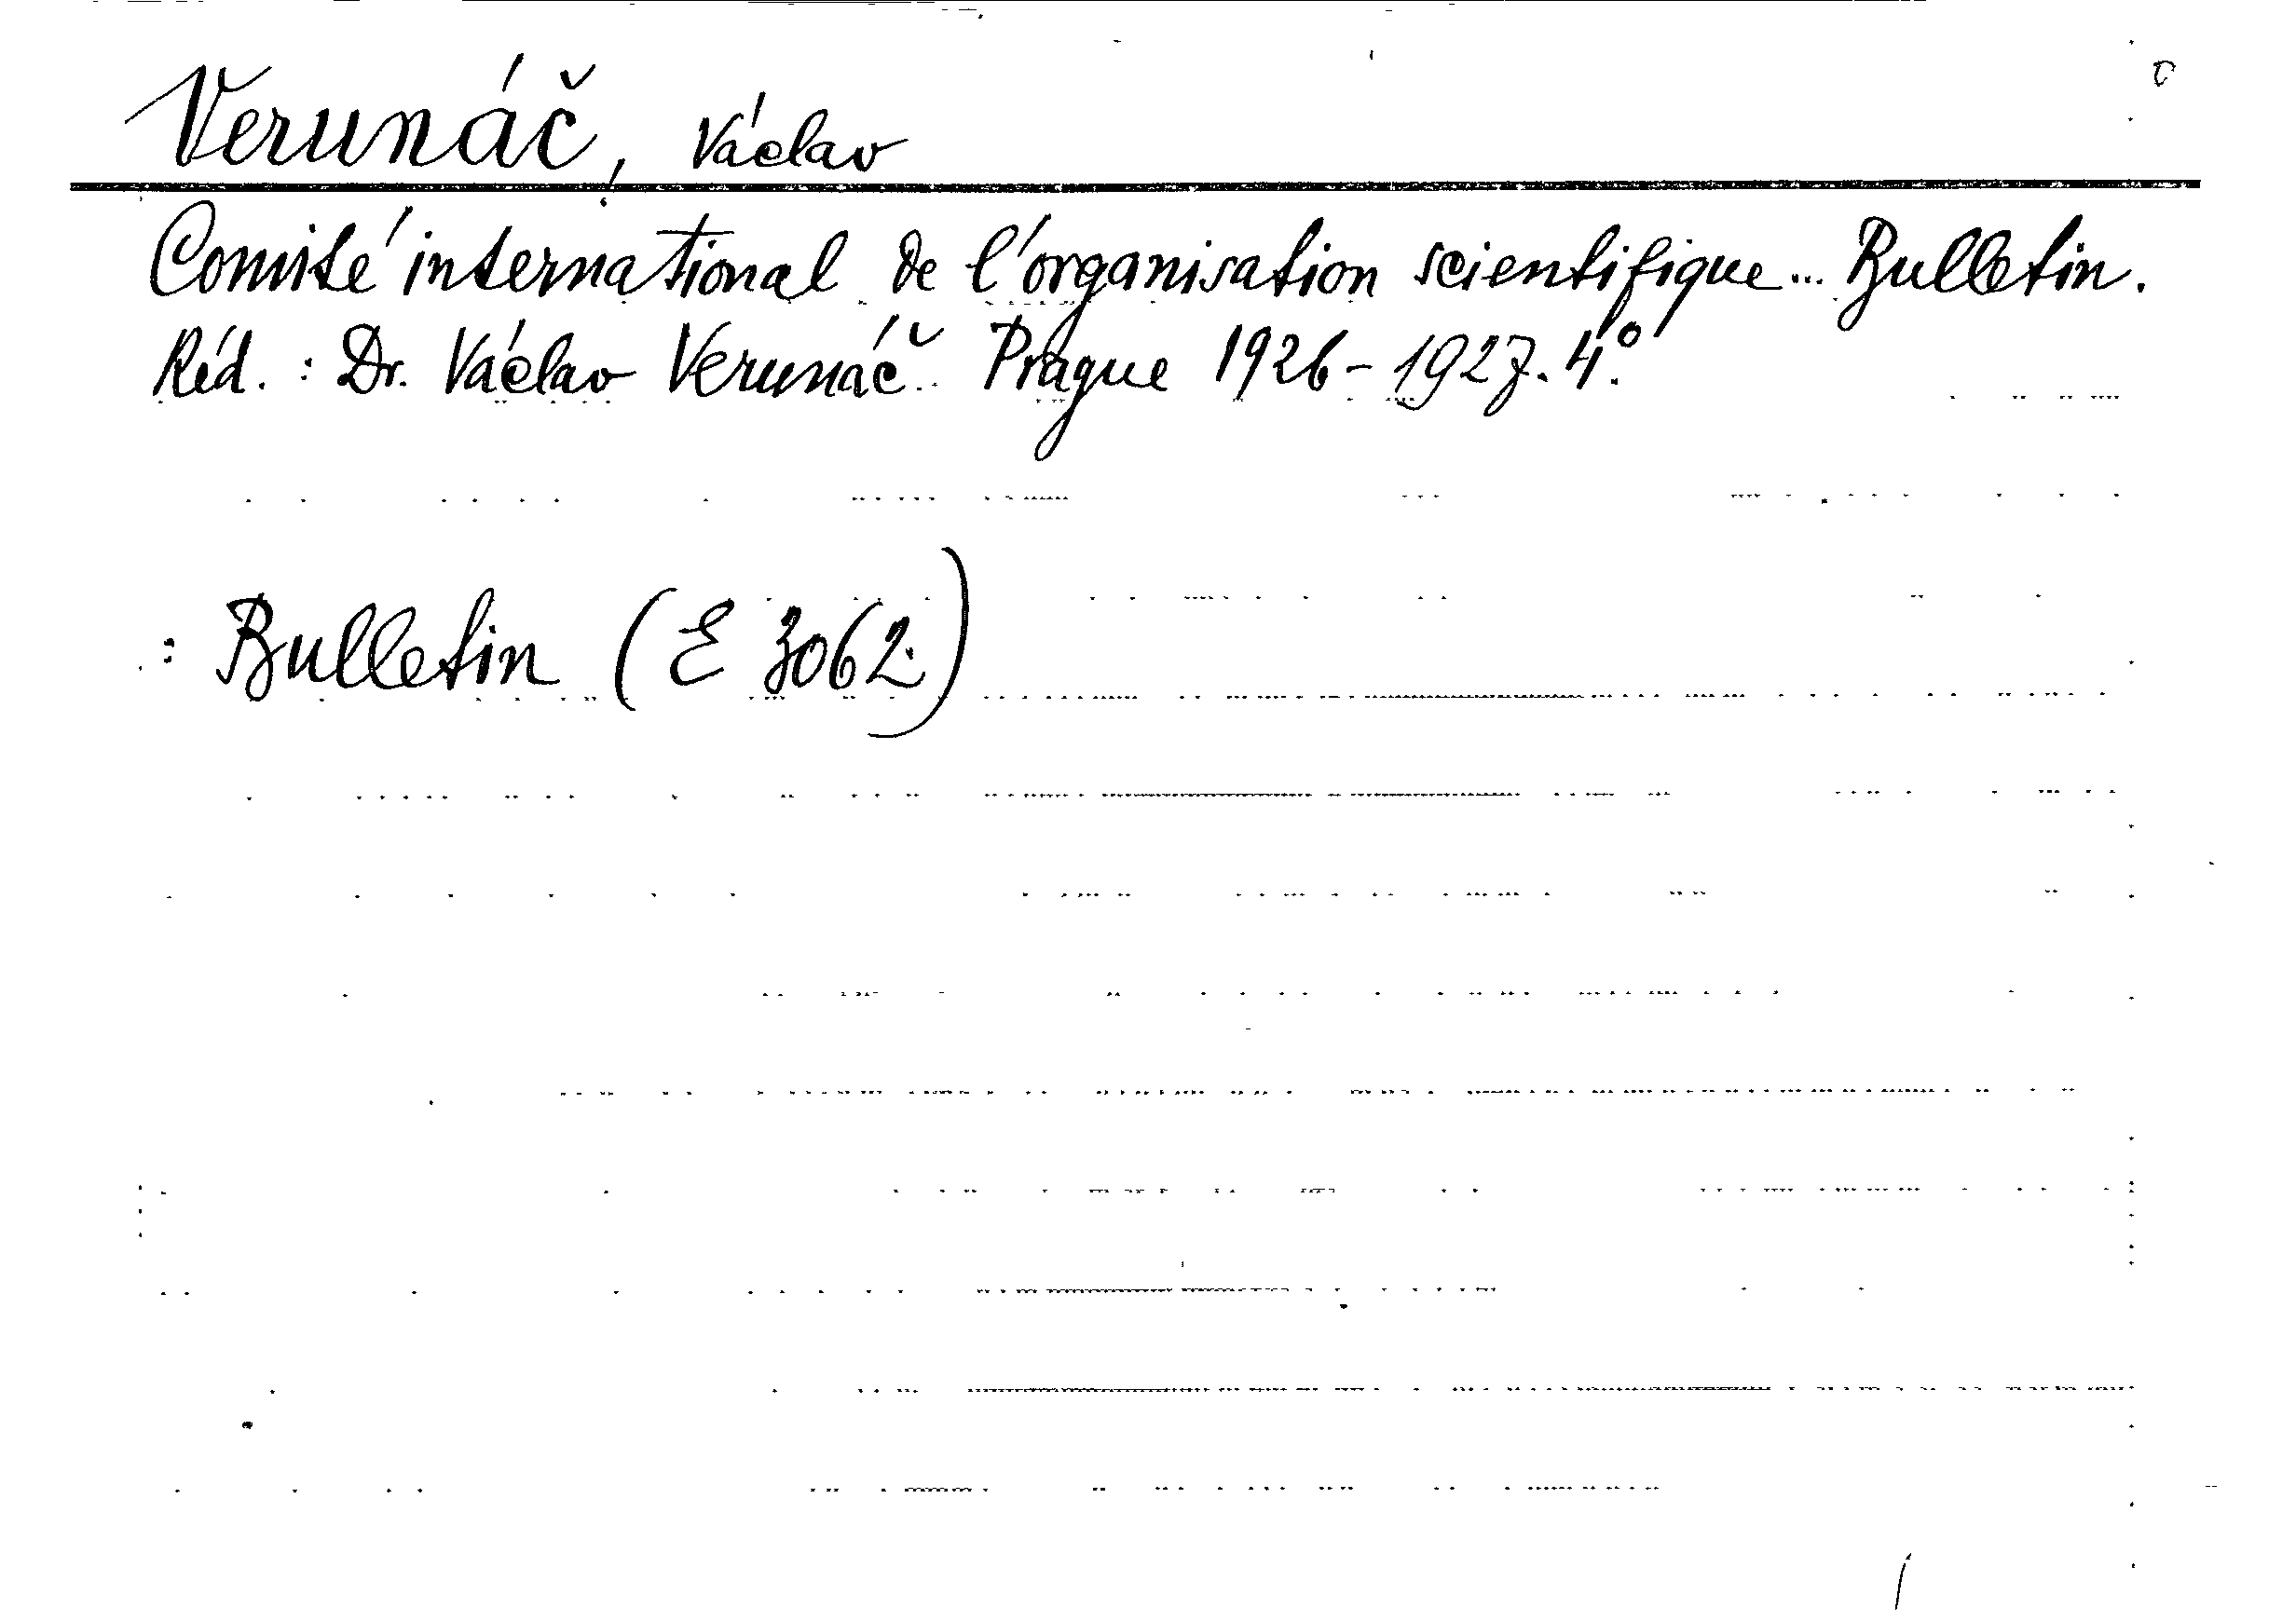 Verunáč, Václav
Comité international de l'organisation scientifique... Bulletin.
Réd. : Dr. Václav Verunáč. Prague 1926-1927. 4°.
: Bulletin (E 3062.)